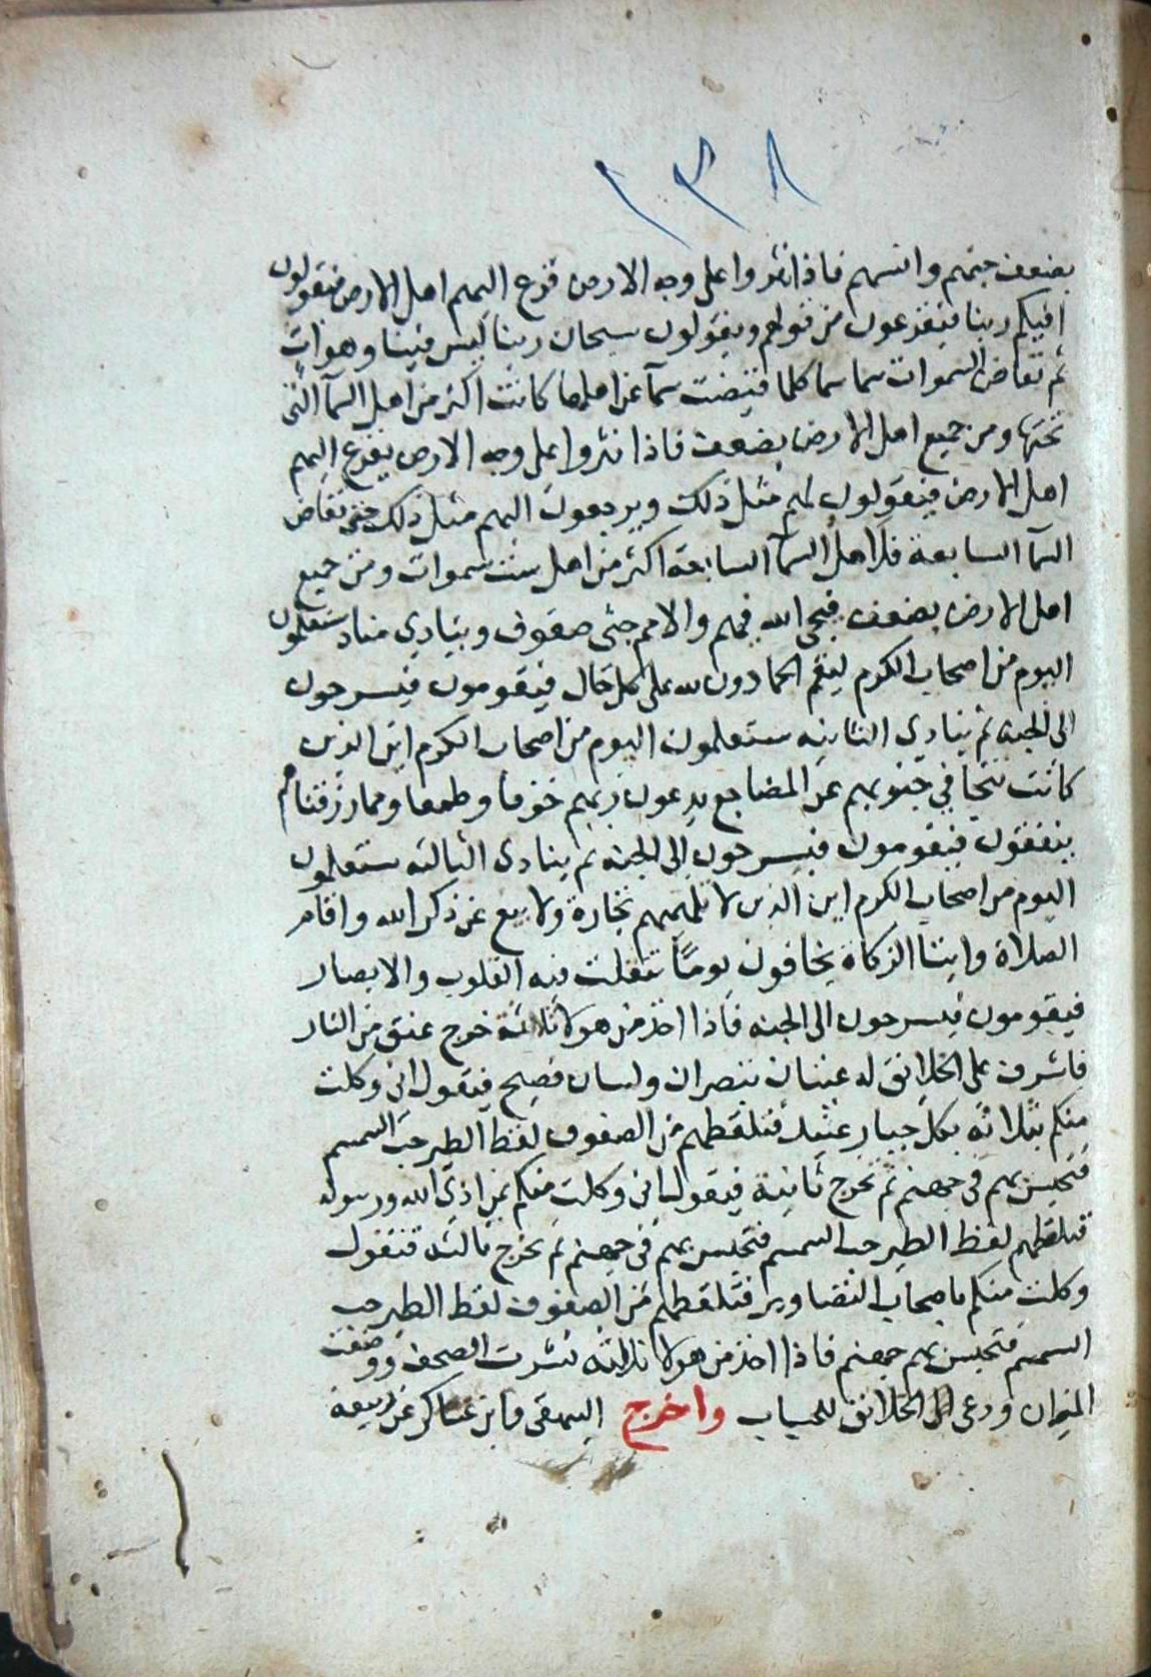 ١٣٨
بضعف جنهم وانسهم فاذا نثروا على وجه الارض فزع اليهم اهل الارض فيقولون
افيكم ربنا فيفزعون من قولهم ويقولون سبحان ربنا ليس فينا وهو ات
ثم تقاض السموات سما سما كلما قيضت سمآ عن اهلها كانت اكثر من اهل السمآ التى
تحتها ومن جميع اهل الارض بضعف فاذا نثروا على وجه الارض يفزع اليهم
اهل الارض فيقولون لهم مثل ذلك ويرجعون اليهم مثل ذلك حتى تقاض
السمآ السابعة فلاهل السمآ السابعة اكثر من اهل ست سموات ومن جميع
اهل الارض بضعف فيجى الله فيهم والامم جثى صفوف وينادى مناد ستعلمون
اليوم من اصحاب الكرم ليقم الحمادون لله على كل حال فيقومون فيسرحون
الى الجنه ثم ينادى الثانيه ستعلمون اليوم من اصحاب الكرم اين الذين
كانت تتجافى جنوبهم عن المضاجع يدعون ربهم خوفا وطمعا ومما رزقناهم
ينفقون فيقومون فيسرحون الى الجنه ثم ينادى الثالثه ستعلمون
اليوم من اصحاب الكرم اين الذين لا تلهيهم تجارة ولا بيع عن ذكر الله واقام
الصلاة وايتا الزكاة يخافون يومًا تتقلب فيه القلوب والابصار
فيقومون فيسرحون الى الجنه فاذا اخذ من هولا ثلاثة خرج عنق من النار
فاشرف على الخلائق له عينان تبصران ولسان فصيح فيقول انى وكلت
منكم بثلاثه بكل جبار عنيد فتلقطهم من الصفوف لقط الطير حب السمسم
فتحبس بهم فى جهنم ثم تخرج ثانية فيقول انى وكلت منكم بمن اذى الله ورسوله
فتلقطهم لقط الطير حب السمسم فتحبس بهم فى جهنم ثم تخرج ثالثه فتقول
وكلت منكم باصحاب التصاوير فتلقطهم من الصفوف لقط الطير حب
السمسم فتحبس بهم جهنم فاذا اخذ من هولا ثلاثة نشرت الصحف ووضعت
الميزان ودعى الخلائق للحساب واخرج البيهقى وابن عساكر عن ربيعة